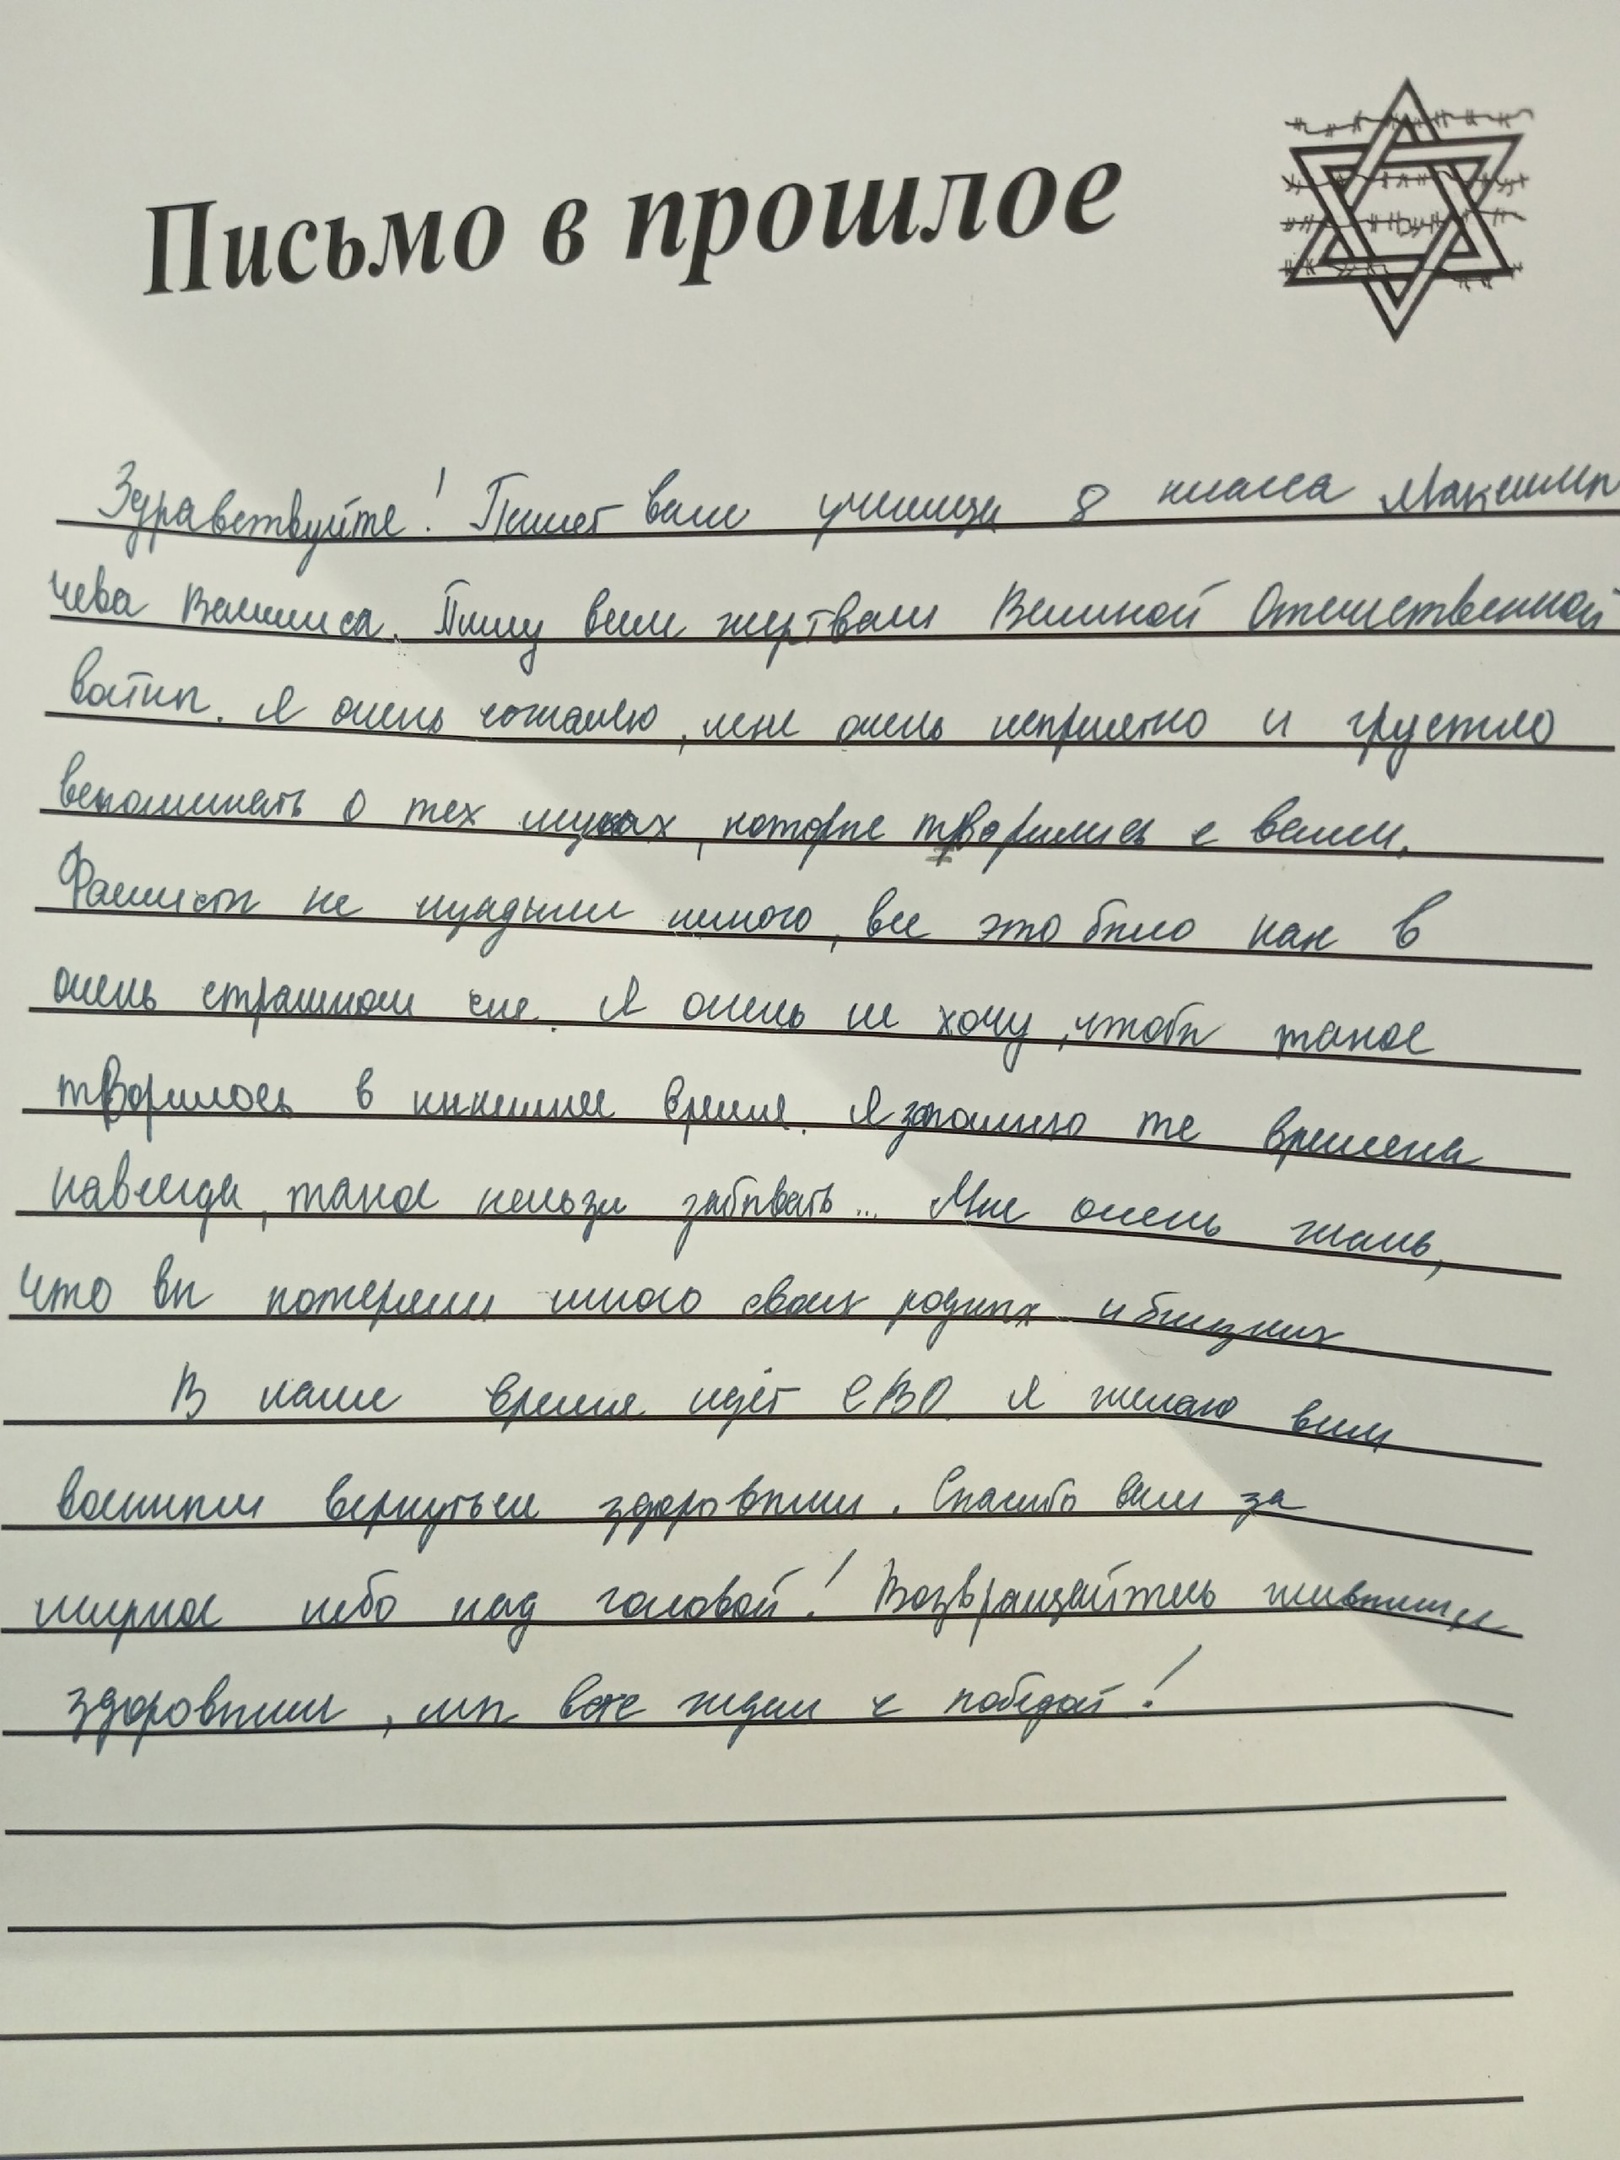 Письмо в прошлое
Здравствуйте! Пишет вам ученица 8 класса Максимы
чева Василиса. Пишу вам жертвам Великой Отечественной
войны. Я очень сожалею, мне очень неприятно и грустно
вспоминать о тех муках, которые творились с вами.
Фашисты не щадили никого, все это было как в
очень страшном сне. Я очень не хочу, чтобы такое
творилось в нынешнее время. Я запомню те времена
навсегда, такое нельзя забывать... Мне очень жаль,
что вы потеряли много своих родных и близких
В наше время идёт СВО. Я желаю всем
военным вернуться здоровыми. Спасибо вам за
мирное небо над головой! Возвращайтесь живыми и
здоровыми, мы все ждем с победой!